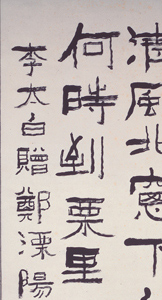 清風北窓下
何時到栗里
李太白贈鄭溧陽